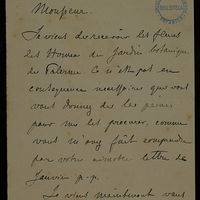 Monsieur.
Je viens de recevoir les fleurs
les Hovea du Jardin botanique
de Palerme. Ce n'est pas en
conséquence nécessaire que vous
vous donnez de les peines
pour me les procurer, comme
vous m'avez fait comprendre
par votre aimable lettre de
Janvier p.p.
Je viens maintenant vous